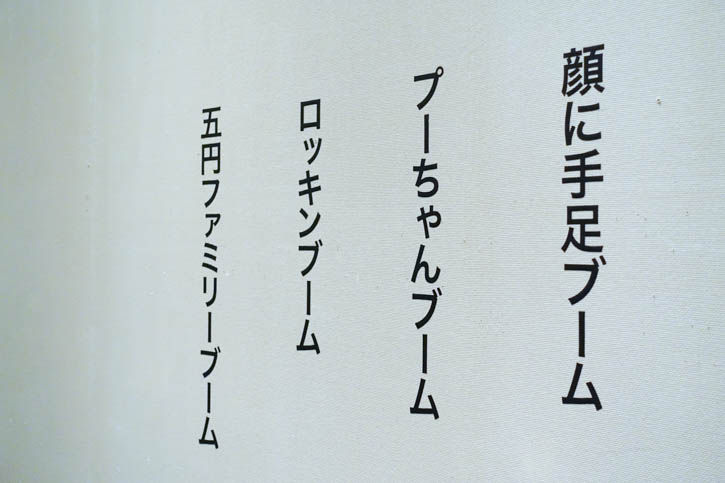 顔に手足ブーム
プーちゃんブーム
ロッキンブーム
五円ファミリーブーム